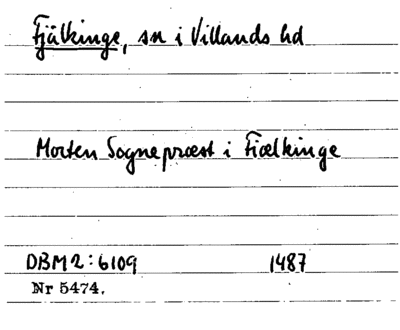 Fjälkinge, sn i Villands hd
Morten Sognepræst i Fiælkinge
DBM2:6109 1487
Nr 5474.